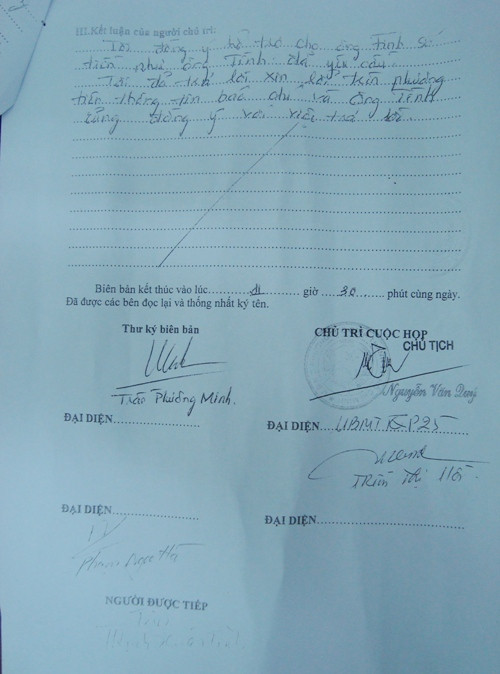 III.Kết luận của người chủ trì:
Tôi đồng ý hỗ trợ cho ông Tình số
tiền như ông Tình đã yêu cầu.
Tôi đã trả lời xin lỗi trên phương
tiện thông tin báo chí và ông Tình
cũng đồng ý với việc trả lời.
Biên bản kết thúc vào lúc.... giờ ...30...... phút cùng ngày.
Đã được các bên đọc lại và thống nhất ký tên.
Thư ký biên bản
CHỦ TRÌ CUỘC HỌP
CHỦ TỊCH
Trần Phương Minh.
Nguyễn Văn
ĐẠI DIỆN
ĐẠI DIỆN UBMT P25
Trần Thị
ĐẠI DIỆN
ĐẠI DIỆN
Phạm Ngọc Hà
NGƯỜI ĐƯỢC TIẾP